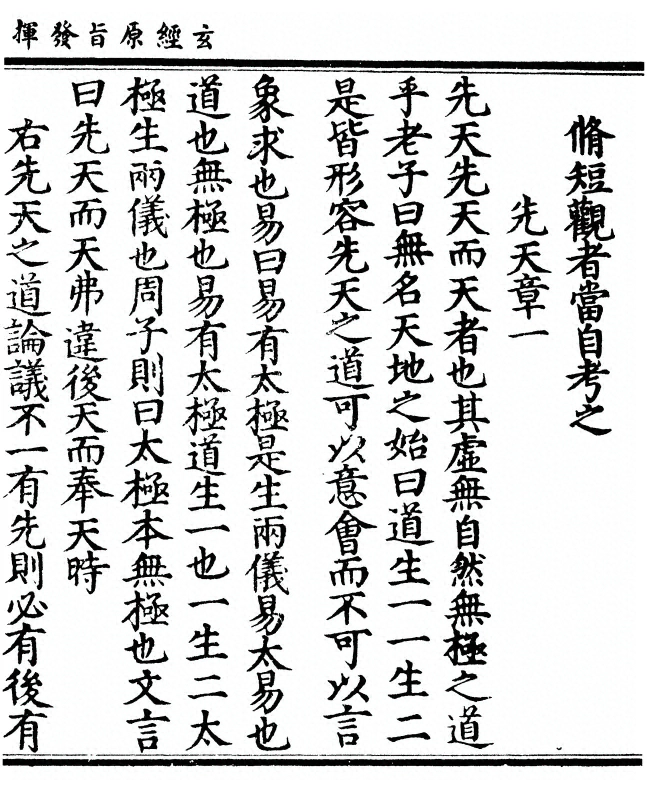 玄經原旨發揮
脩短觀者當自考之
先天章一
先天先天而天者也其虛無自然無極之道
乎老子曰無名天地之始曰道生一一生二
是皆形容先天之道可以意會而不可以言
象求也易曰易有太極是生兩儀易太易也
道也無極也易有太極道生一也一生二太
極生兩儀也周子則曰太極本無極也文言
曰先天而天弗違後天而奉天時
右先天之道論議不一有先則必有後有